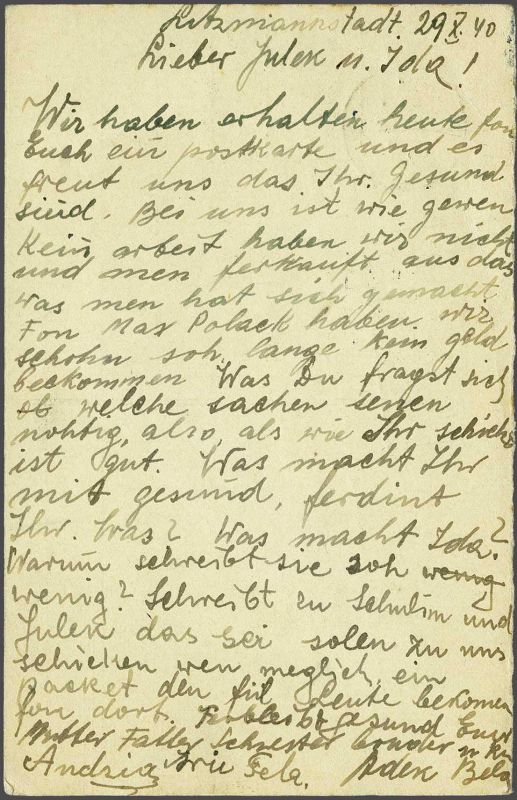 Litzmannstadt. 29 X. 40
Lieber Julek u. Ida!
Wir haben erhalten heute fon
Euch ein postkarte und es
freut uns das Ihr. Gesund
sind. Bei uns ist wie gewen
Kein arbeit haben wir nicht
und men ferkauft aus das
was men hat sich gemacht
Fon Max Polack haben. wir
schohn soh, lange kein geld
beckommen Was Du fragst sich
ob welche sachen senen
nohtig, also, als wie Ihr schickt
ist gut. Was macht Ihr
mit gesund, ferdint
Ihr. Was? Was macht Ida?
Warum schreibt sie soh wenig
wenig? Schreibt zu Schulim und
Julek das sei solen zu uns
schicken wen meglich, ein
packet den fil Leute bekomen
fon dort. Ferbleibt gesund Euer
Mutter Fatter Schwester bruder u
Andzia Fela. Adek Bela